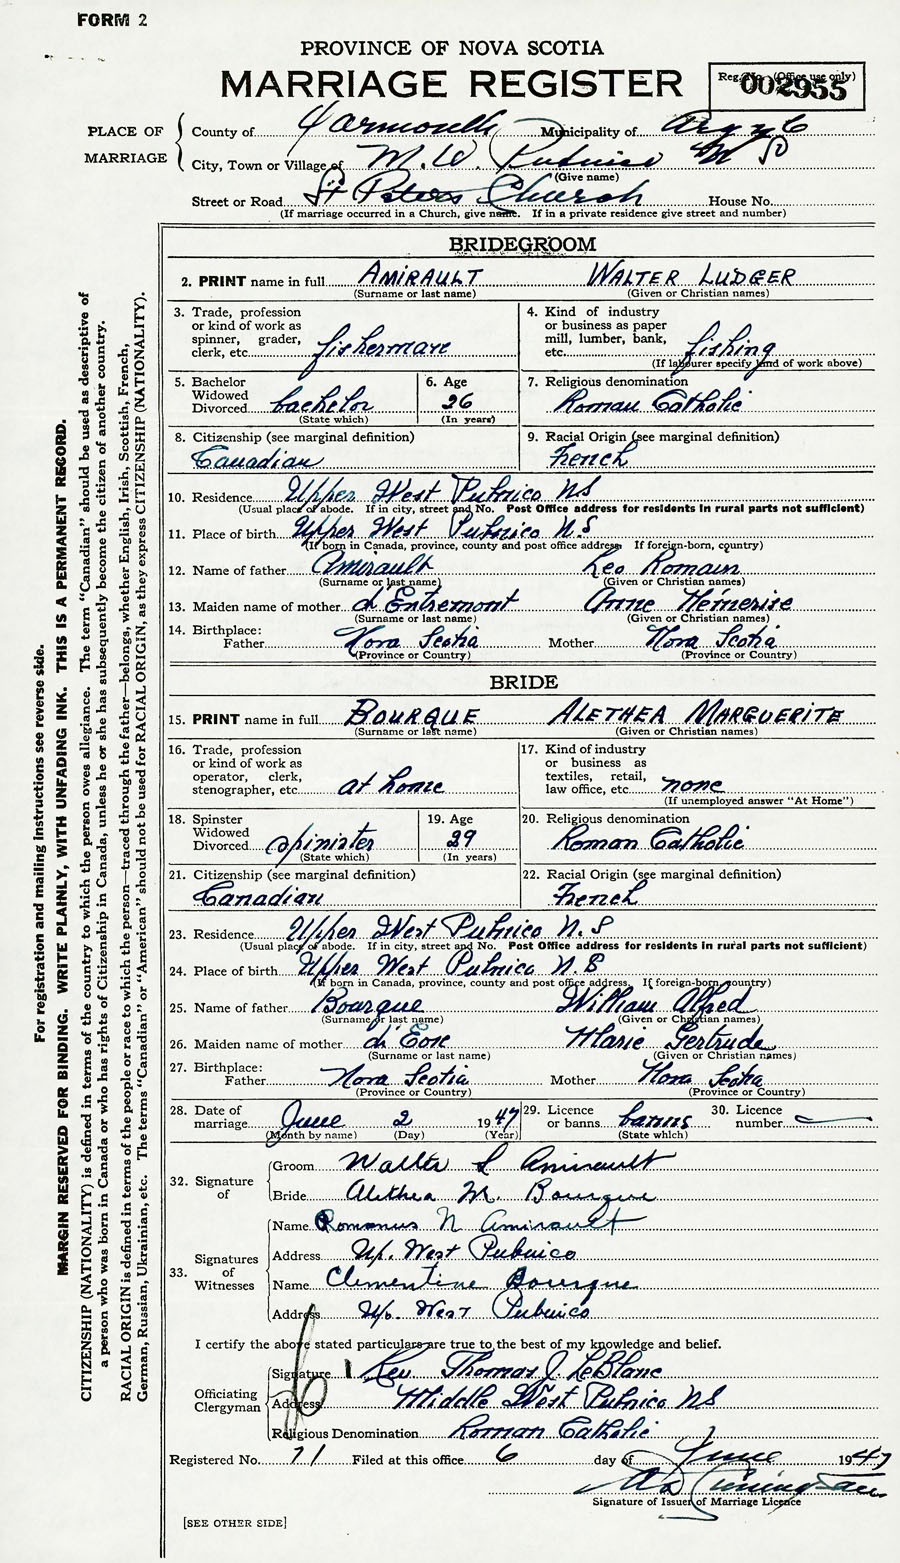 FORM 2
PROVINCE OF NOVA SCOTIA
MARRIAGE REGISTER
Reg. No. (Office use only)
002955
PLACE OF MARRIAGE
County of Yarmouth Municipality of Argyle
City, Town or Village of M. W. Pubnico N S
(Give name)
Street or Road St Peters Church House No.
(If marriage occurred in a Church, give name. If in a private residence give street and number)
BRIDEGROOM
2. PRINT name in full AMIRAULT WALTER LUDGER
(Surname or last name) (Given or Christian names)
3. Trade, profession or kind of work as spinner, grader, clerk, etc. fisherman
4. Kind of industry or business as paper mill, lumber, bank, etc. fishing
(If labourer specify kind of work above)
5. Bachelor Widowed Divorced bachelor
(State which)
6. Age 26
(In years)
7. Religious denomination
Roman Catholic
8. Citizenship (see marginal definition)
Canadian
9. Racial Origin (see marginal definition)
French
10. Residence Upper West Pubnico NS
(Usual place of abode. If in city, street and No. Post Office address for residents in rural parts not sufficient)
11. Place of birth Upper West Pubnico N.S
(If born in Canada, province, county and post office address. If foreign-born, country)
12. Name of father Amirault Leo Romain
(Surname or last name) (Given or Christian names)
13. Maiden name of mother d'Entremont Anne
(Surname or last name) (Given or Christian names)
14. Birthplace:
Father Nova Scotia Mother Nova Scotia
(Province or Country) (Province or Country)
BRIDE
15. PRINT name in full BOURQUE ALETHEA MARGUERITE
(Surname or last name) (Given or Christian names)
16. Trade, profession or kind of work as operator, clerk, stenographer, etc. at home
17. Kind of industry or business as textiles, retail, law office, etc. none
(If unemployed answer "At Home")
18. Spinster Widowed Divorced spinister
(State which)
19. Age 29
(In years)
20. Religious denomination
Roman Catholic
21. Citizenship (see marginal definition)
Canadian
22. Racial Origin (see marginal definition)
French
23. Residence Upper West Pubnico N.S
(Usual place of abode. If in city, street and No. Post Office address for residents in rural parts not sufficient)
24. Place of birth Upper West Pubnico N.S
(If born in Canada, province, county and post office address. If foreign-born, country)
25. Name of father Bourque William Alfred
(Surname or last name) (Given or Christian names)
26. Maiden name of mother d'Eon Marie Gertrude
(Surname or last name) (Given or Christian names)
27. Birthplace:
Father Nova Scotia Mother Nova Scotia
(Province or Country) (Province or Country)
28. Date of marriage June 2 1947
(Month by name) (Day) (Year)
29. Licence or banns banns
(State which)
30. Licence number
32. Signature of
Groom Walter L Amirault
Bride Alethea M. Bourque
33. Signatures of Witnesses
Name Romanus N Amirault
Address Up. West Pubnico
Name Clementine Bourque
Address Up. West Pubnico
I certify the above stated particulars are true to the best of my knowledge and belief.
Officiating Clergyman
Signature Rev Thomas J. LeBlanc
Address Middle West Pubnico NS
Religious Denomination Roman Catholic
Registered No. 71 Filed at this office 6 day of June 1947
Signature of Issuer of Marriage Licence
[SEE OTHER SIDE]
For registration and mailing instructions see reverse side.
MARGIN RESERVED FOR BINDING. WRITE PLAINLY, WITH UNFADING INK. THIS IS A PERMANENT RECORD.
CITIZENSHIP (NATIONALITY) is defined in terms of the country to which the person owes allegiance. The term "Canadian" should be used as descriptive of
a person who was born in Canada or who has rights of Citizenship in Canada, unless he or she has subsequently become the citizen of another country.
RACIAL ORIGIN is defined in terms of the people or race to which the person—traced through the father—belongs, whether English, Irish, Scottish, French,
German, Russian, Ukrainian, etc. The terms "Canadian" or "American" should not be used for RACIAL ORIGIN, as they express CITIZENSHIP (NATIONALITY).